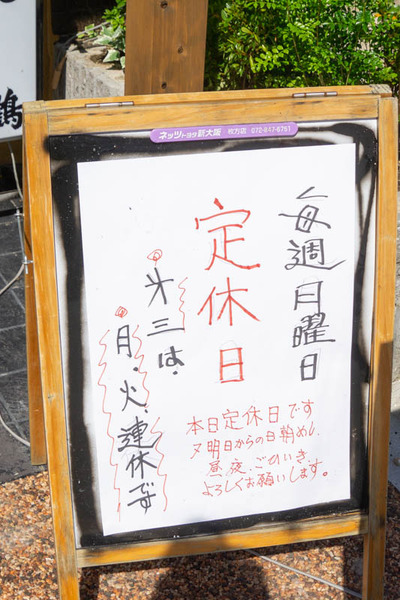 ネッツトヨタ新大阪 枚方店 072-847-6761
毎週月曜日
定休日
㐧三は、
月、火、連休です
本日定休日です
又明日からの日朝めし、
昼夜、ごひいき
よろしくお願いします。
鶴